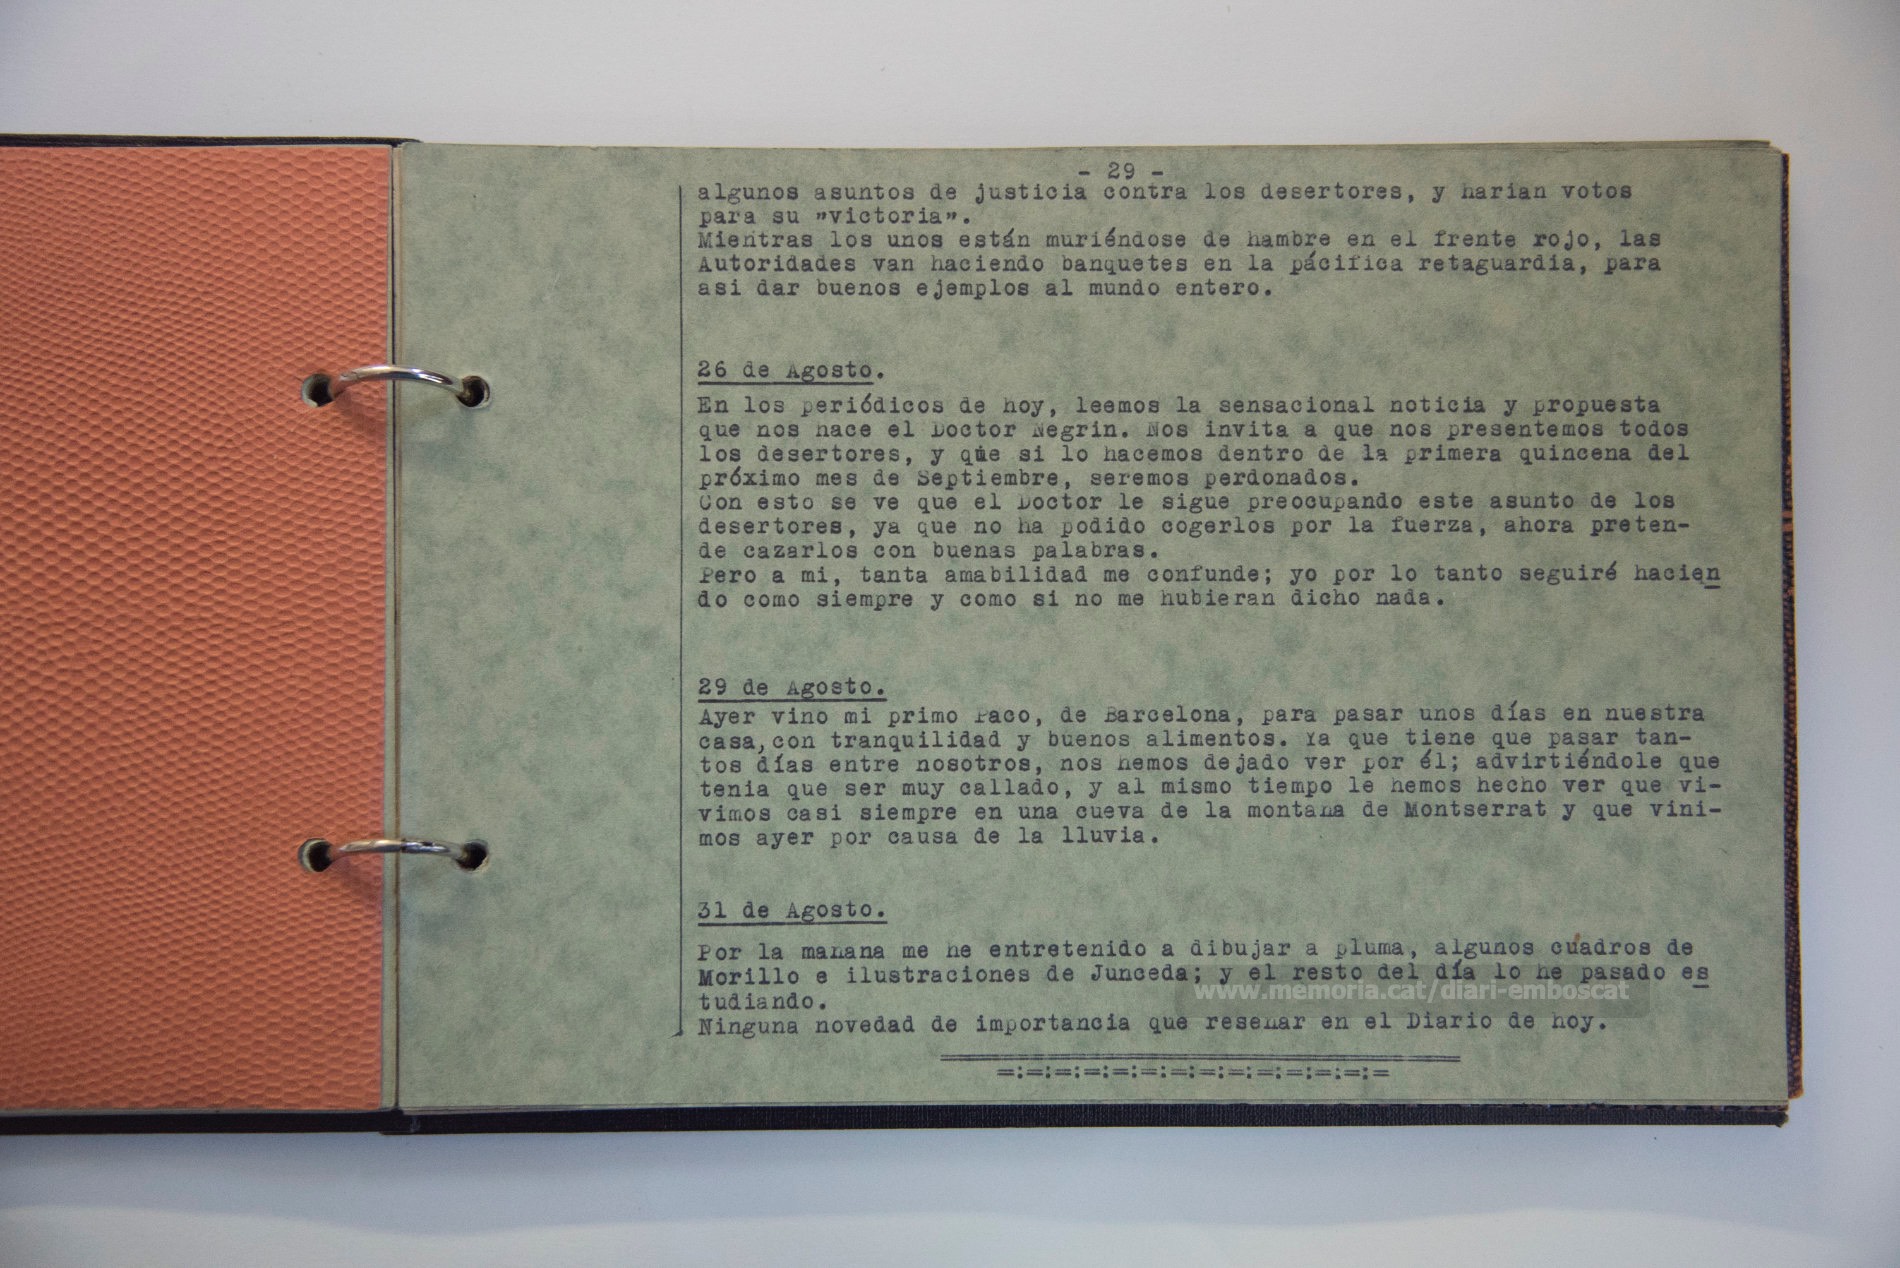 - 29 -
algunos asuntos de justicia contra los desertores, y harian votos
para su "victoria".
Mientras los unos están muriéndose de hambre en el frente rojo, las
Autoridades van haciendo banquetes en la pácifica retaguardia, para
asi dar buenos ejemplos al mundo entero.
26 de Agosto.
En los periódicos de hoy, leemos la sensacional noticia y propuesta
que nos hace el Doctor Negrin. Nos invita a que nos presentemos todos
los desertores, y que si lo hacemos dentro de la primera quincena del
próximo mes de Septiembre, seremos perdonados.
Con esto se ve que el Doctor le sigue preocupando este asunto de los
desertores, ya que no ha podido cogerlos por la fuerza, ahora preten-
de cazarlos con buenas palabras.
Pero a mi, tanta amabilidad me confunde; yo por lo tanto seguiré hacien
do como siempre y como si no me hubieran dicho nada.
29 de Agosto.
Ayer vino mi primo Paco, de Barcelona, para pasar unos días en nuestra
casa,con tranquilidad y buenos alimentos. Ya que tiene que pasar tan-
tos días entre nosotros, nos hemos dejado ver por él; advirtiéndole que
tenia que ser muy callado, y al mismo tiempo le hemos hecho ver que vi-
vimos casi siempre en una cueva de la montaña de Montserrat y que vini-
mos ayer por causa de la lluvia.
31 de Agosto.
Por la mañana me he entretenido a dibujar a pluma, algunos cuadros de
Morillo e ilustraciones de Junceda; y el resto del día lo he pasado es
tudiando.
www.memoria.cat/diari-emboscat
Ninguna novedad de importancia que reseñar en el Diario de hoy.
=:=:=:=:=:=:=:=:=:=:=:=:=:=